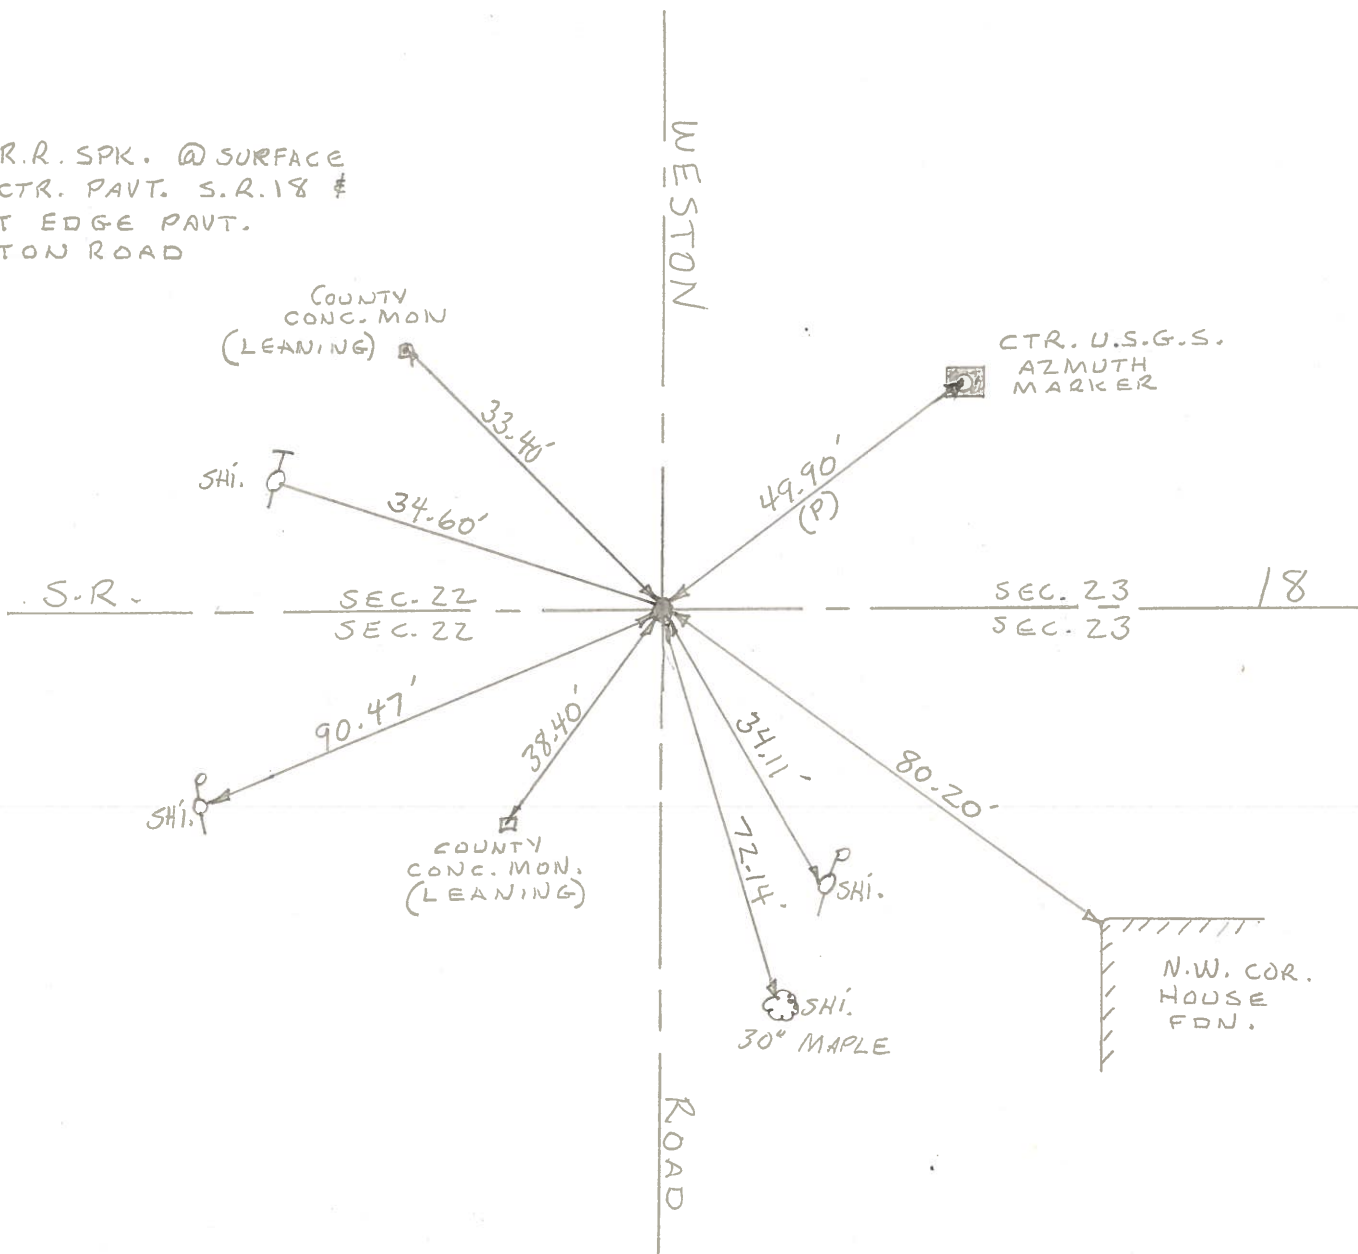 R.R. SPK. @ SURFACE
CTR. PAVT. S.R. 18 &
T EDGE PAVT.
TON ROAD
WESTON
COUNTY
CONC. MON
(LEANING)
CTR. U.S.G.S.
AZMUTH
MARKER
33.40'
SHí.
34.60'
49.90'
(P)
S.R.
SEC. 22
SEC. 23
18
SEC. 22
SEC. 23
90.47'
38.40'
34.11'
80.20'
SHí.
COUNTY
CONC. MON.
(LEANING)
72.14'
SHí.
N.W. COR.
HOUSE
FDN.
SHí.
30" MAPLE
ROAD